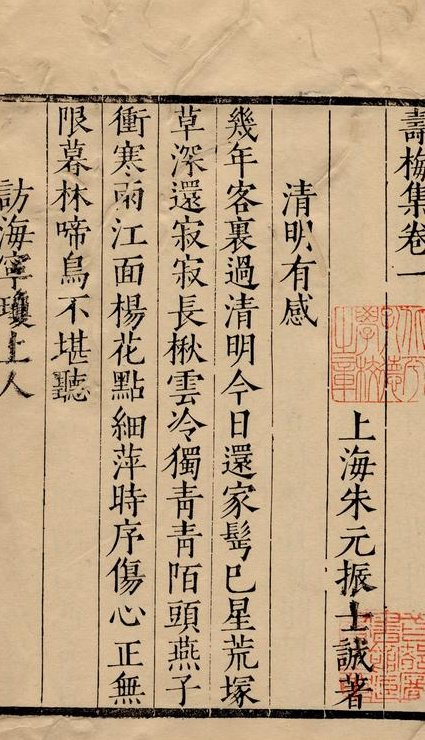 壽梅集卷一
上海朱元振士誠著
清明有感
幾年客裏過清明今日還家髩巳星荒塚
草深還寂寂長楸雲冷獨靑靑陌頭燕子
衝寒雨江面楊花點細萍時序傷心正無
限暮林啼鳥不堪聽
訪海寧瓊上人